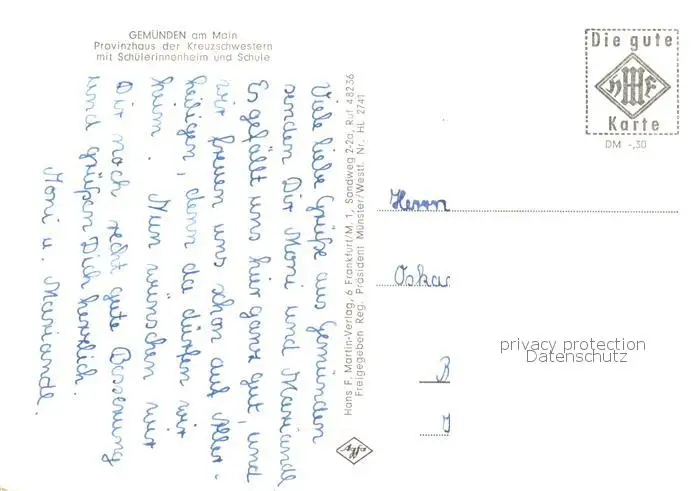 GEMÜNDEN am Main
Provinzhaus der Kreuzschwestern
mit Schülerinnenheim und Schule
Viele liebe Grüße aus Gemünden
senden Dir Moni und Mariande
Es gefällt uns hier ganz gut, und
wir freuen uns schon auf Aller-
heiligen, denn da dürfen wir
heim. Nun wünschen wir
Dir noch recht gute Besserung
und grüßen Dich herzlich.
Moni u. Mariande.
Hans F. Martin-Verlag, 6 Frankfurt/M. 1, Sandweg 2-2a, Ruf 48236
Freigegeben Reg. Präsident Münster/Westf. Nr. HL 2741
Agfa
Die gute
HMF
Karte
DM -,30
Herrn
Oskar
privacy protection
Datenschutz